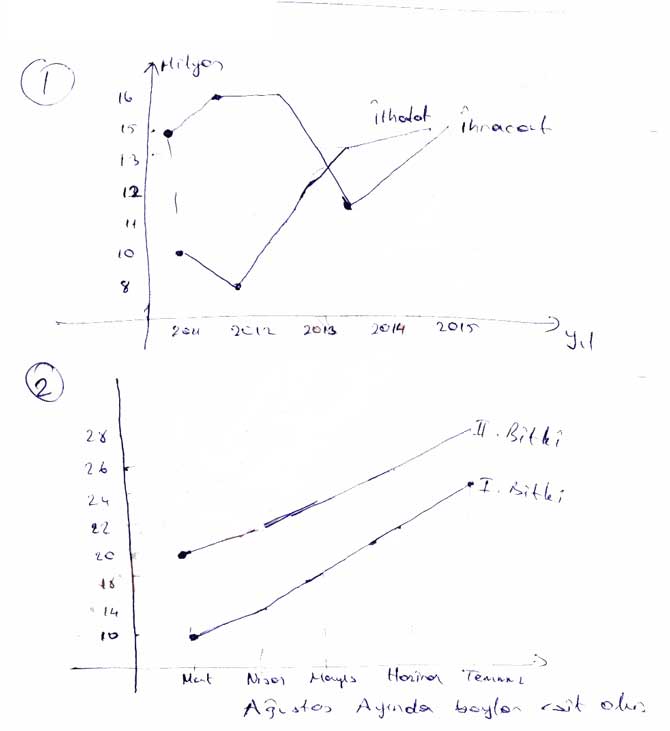 1
Milyon
16
15
13
12
11
10
8
İthalat
İhracat
2011 2012 2013 2014 2015
Yıl
2
28
26
24
22
20
18
14
10
II. Bitki
I. Bitki
Mart Nisan Mayıs Haziran Temmuz
Ağustos Ayında boyları eşit olur